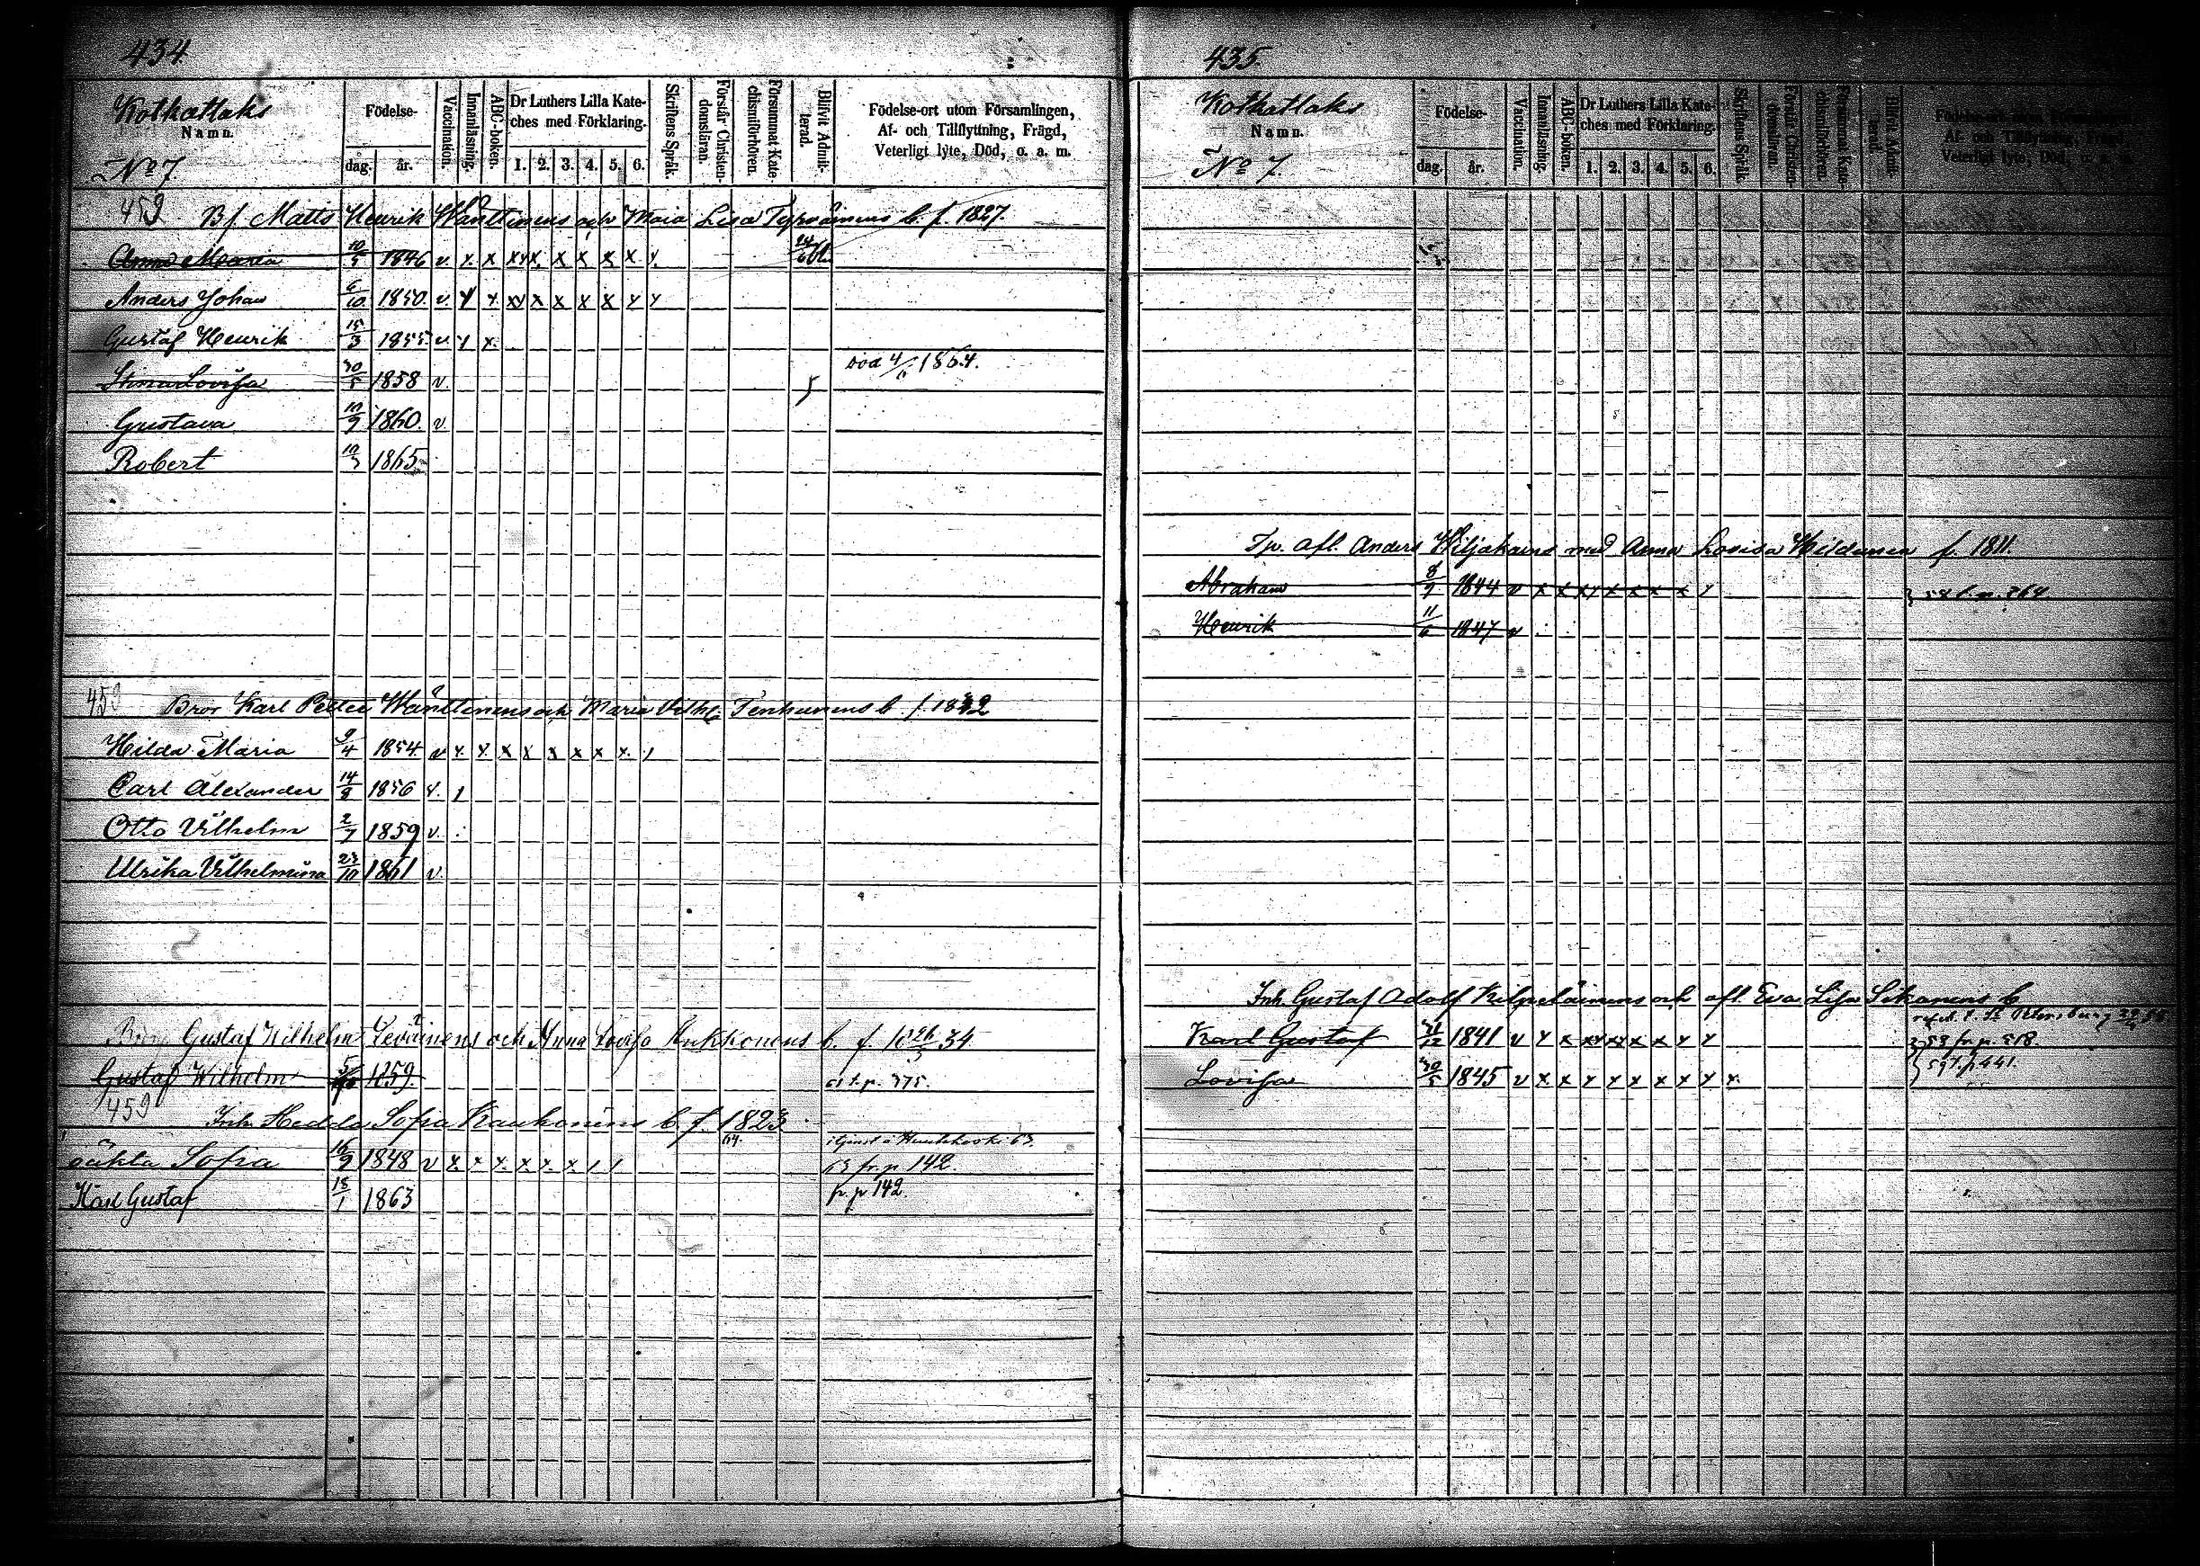 434.
Kotkatlaks
Namn.
No 7
Födelse-
dag. år.
Vaccination.
Innanläsning.
ABC-boken.
Dr Luthers Lilla Kate-
ches med Förklaring.
1. 2. 3. 4. 5. 6.
Skriftens Språk.
Förstår Christen-
domsläran.
Försummat Kate-
chismiförhören.
Blifvit Admit-
terad.
Födelse-ort utom Församlingen,
Af- och Tillflyttning, Frägd,
Veterligt lyte, Död, o. a. m.
459 Bf. Matts Henrik Wänttinens och Maia Lisa b. f. 1827
Anna Maria 10/5 1846 v x x xx x x x x x x
Anders Johan 6/10 1850. v x x xx x x x x x x
Gustaf Henrik 15/3 1855 v x x
Stina Lovisa 30/5 1858 v död 4/6 1864.
Gustava 10/9 1860. v
Robert 10/3 1865
459 Bror Karl Petter Wänttinens och Maria Vilh: Tenhunens b. f. 1832
Hilda Maria 9/4 1854 v x x x x x x x x /
Carl Alexander 14/8 1856 v /
Otto Vilhelm 2/7 1859 v.
Ulrika Vilhelmina 23/10 1861 v
Gustaf Wilhelm Leväinens och Anna Lovisa Hukkonens b. f. 26/3 34.
Gustaf Wilhelm 1859. 61 t. p. 375.
459
Inh. Hedda Sofia Kaukonens b. f. 1823
64.
oäkta Sofia 16/9 1848 v x x x x x x / / 63 fr. p. 142.
Karl Gustaf 18/1 1863 fr. p. 142.
435.
Kotkatlaks
Namn.
No 7.
Födelse-
dag. år.
Vaccination.
Innanläsning.
ABC-boken.
Dr Luthers Lilla Kate-
ches med Förklaring.
1. 2. 3. 4. 5. 6.
Skriftens Språk.
Förstår Christen-
domsläran.
Försummat Kate-
chismiförhören.
Blifvit Admit-
terad.
Födelse-ort utom Församlingen,
Af- och Tillflyttning, Frägd,
Veterligt lyte, Död, o. a. m.
Tp. afl. Anders Hiljakains med Anna Lovisa f. 1811.
Abraham 8/9 1844 v x x xx x x x x x
Henrik 11/6 1847 v
Inh. Gustaf Adolf Kilpeläinens och afl. Eva Lisa b
Karl Gustaf 31/12 1841 v x x xx xx x x x x 53 fr. p. 518.
Lovisa 30/5 1845 v x x x x x x x x x 59 t. p. 441.